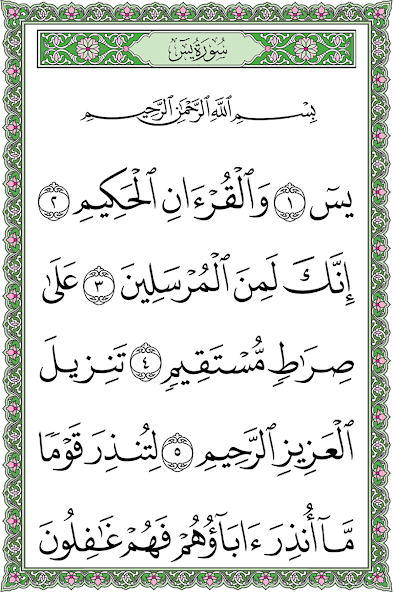 سُورَةُ يسٓ
بِسْمِ ٱللَّهِ ٱلرَّحْمَٰنِ ٱلرَّحِيمِ
يسٓ ۝١ وَٱلْقُرْءَانِ ٱلْحَكِيمِ ۝٢
إِنَّكَ لَمِنَ ٱلْمُرْسَلِينَ ۝٣ عَلَىٰ
صِرَٰطٍ مُّسْتَقِيمٍ ۝٤ تَنزِيلَ
ٱلْعَزِيزِ ٱلرَّحِيمِ ۝٥ لِتُنذِرَ قَوْمًا
مَّآ أُنذِرَ ءَابَآؤُهُمْ فَهُمْ غَٰفِلُونَ